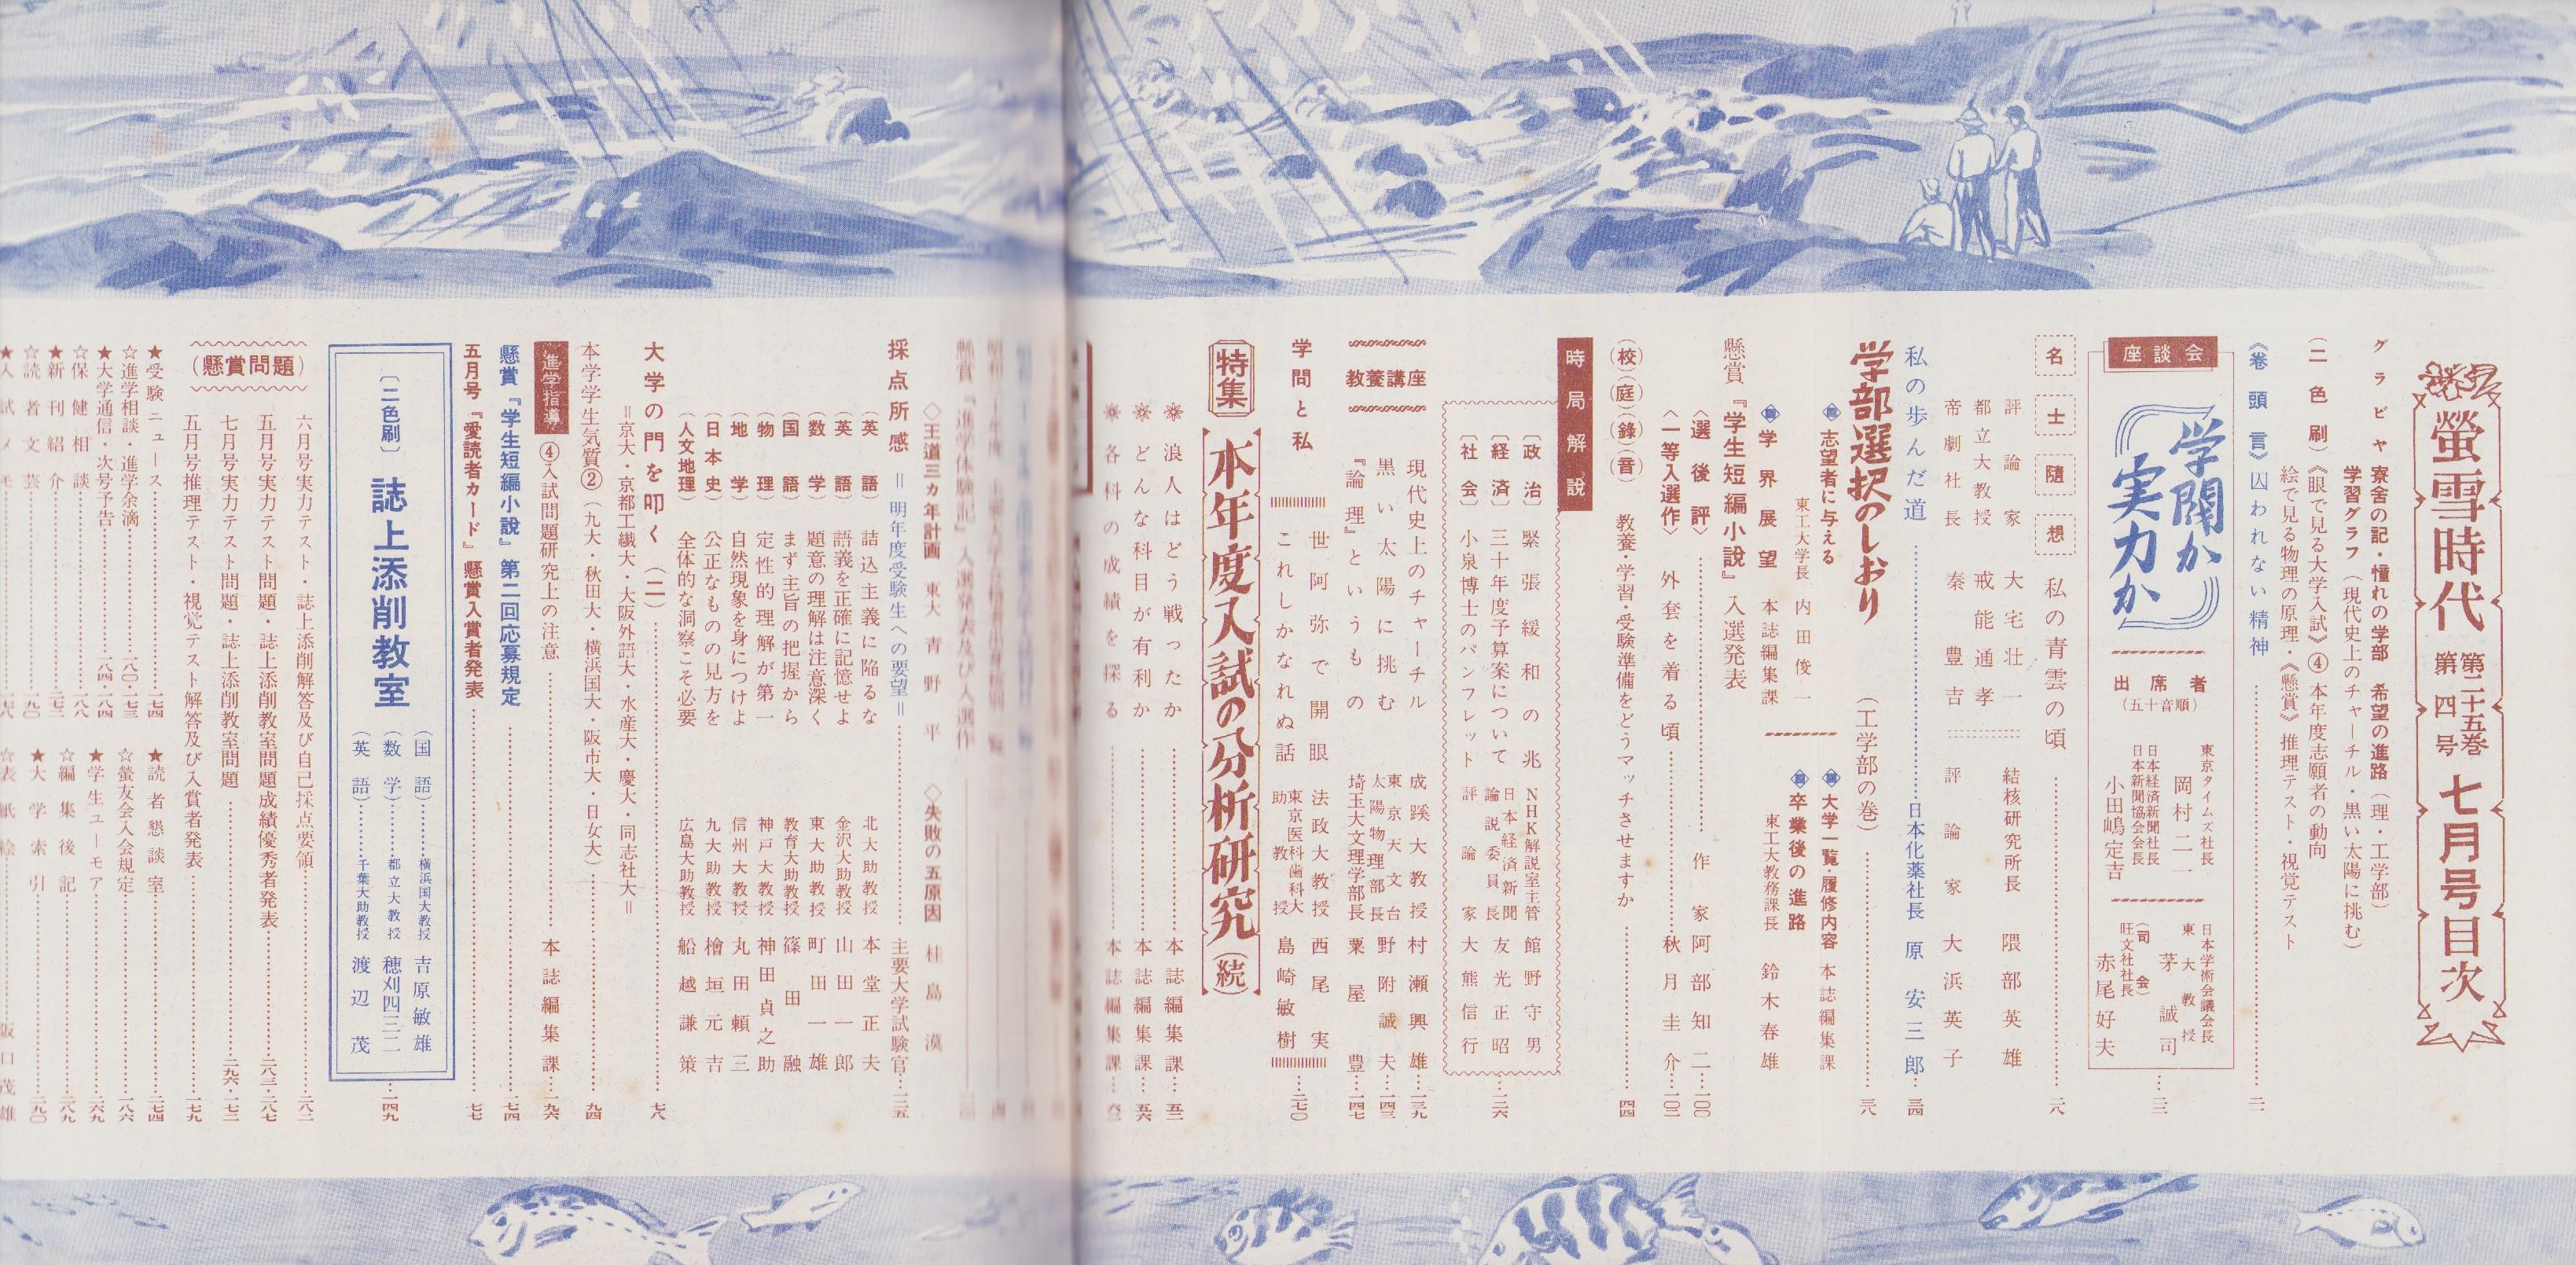 螢雪時代 第二十五巻 第四号 七月号目次
グラビヤ 寮舎の記・憧れの学部 希望の進路(理・工学部)
学習グラフ(現代史上のチャーチル・黒い太陽に挑む)
(二色刷)《眼で見る大学入試》④本年度志願者の動向
絵で見る物理の原理・《懸賞》推理テスト・視覚テスト
《巻頭言》囚われない精神……二一
座談会
学閥か
実力か
出席者
(五十音順)
東京タイムズ社長 岡村二一
日本経済新聞社長
日本新聞協会会長 小田嶋定吉
日本学術会議会長
東大教授 茅誠司
(司会)
旺文社社長 赤尾好夫……二二
名士随想 私の青雲の頃……二八
評論家 大宅壮一
都立大教授 戒能通孝
帝劇社長 秦豊吉
結核研究所長 隈部英雄
評論家 大浜英子
私の歩んだ道……日本化薬社長 原安三郎……三四
学部選択のしおり(工学部の巻)……三八
志望者に与える
東工大学長 内田俊一
学界展望 本誌編集課
大学一覧・履修内容 本誌編集課
卒業後の進路
東工大教務課長 鈴木春雄
懸賞『学生短編小説』入選発表
〈選後評〉……作家 阿部知二……一〇〇
〈一等入選作〉外套を着る頃……秋月圭介……一〇二
(校)(庭)(録)(音) 教養・学習・受験準備をどうマッチさせますか……四四
時局解説
〔政治〕緊張緩和の兆 NHK解説室主管 館野守男
〔経済〕三十年度予算案について 日本経済新聞論説委員 友光正昭
〔社会〕小泉博士のパンフレット 評論家 大熊信行……三六
教養講座
現代史上のチャーチル 成蹊大教授 村瀬興雄……一三九
黒い太陽に挑む 東京天文台太陽物理部長 野附誠夫……一四三
『論理』というもの 埼玉大文理学部長 粟屋豊……一四七
学問と私
世阿弥で開眼 法政大教授 西尾実
これしかなれぬ話 東京医科歯科大助教授 島崎敏樹……二七〇
特集 本年度入試の分析研究(続)
浪人はどう戦ったか……本誌編集課……五二
どんな科目が有利か……本誌編集課……五六
各科の成績を探る……本誌編集課……六二
◇王道三カ年計画 東大 青野平
◇失敗の五原因 桂島漠
採点所感 =明年度受験生への要望=……主要大学試験官……三五
(英語)詰込主義に陥るな 北大助教授 本堂正夫
(英語)語義を正確に記憶せよ 金沢大助教授 山田一郎
(数学)題意の理解は注意深く 東大助教授 町田一雄
(国語)まず主旨の把握から 教育大助教授 篠田融
(物理)定性的理解が第一 神戸大教授 神田貞之助
(地学)自然現象を身につけよ 信州大教授 丸田頼三
(日本史)公正なものの見方を 九大助教授 檜垣元吉
(人文地理)全体的な洞察こそ必要 広島大助教授 船越謙策
大学の門を叩く(二)……七八
=京大・京都工繊大・大阪外語大・水産大・慶大・同志社大=
本学学生気質②(九大・秋田大・横浜国大・阪市大・日女大)……九四
進学指導 ④入試問題研究上の注意……本誌編集課……一九六
懸賞『学生短編小説』第二回応募規定……七四
五月号『愛読者カード』懸賞入賞者発表……七七
〔二色刷〕誌上添削教室……一四九
(国語)……横浜国大教授 吉原敏雄
(数学)……都立大教授 穂刈四三二
(英語)……千葉大助教授 渡辺茂
(懸賞問題)
六月号実力テスト・誌上添削解答及び自己採点要領……二八二
五月号実力テスト問題・誌上添削教室問題成績優秀者発表……二八三・二八七
七月号実力テスト問題・誌上添削教室問題……二九六・一七二
五月号推理テスト・視覚テスト解答及び入賞者発表……一七九
★受験ニュース……一七四
☆進学相談・進学余滴……一八〇・一七三
★大学通信・次号予告……一八四・一八四
☆保健相談……一八八
★新刊紹介……一七三
☆読者文芸……一九〇
★入試メモ
★読者懇談室……二七四
☆螢友会入会規定……一八六
★学生ユーモア……二六九
☆編集後記……二八九
★大学索引……二九〇
☆表紙絵……阪口茂雄